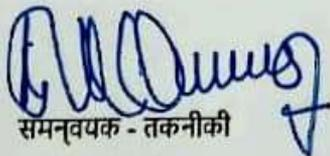 समन्वयक - तकनीकी